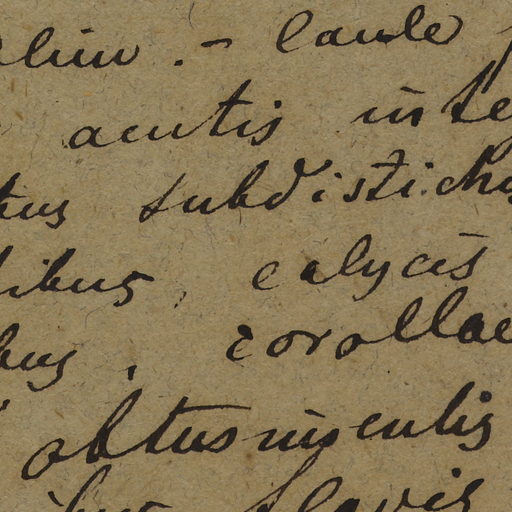 . - Caule
acutis inte
tus subdistichis
libus, calycis
bus, corollae
obtusiusculis
flavis